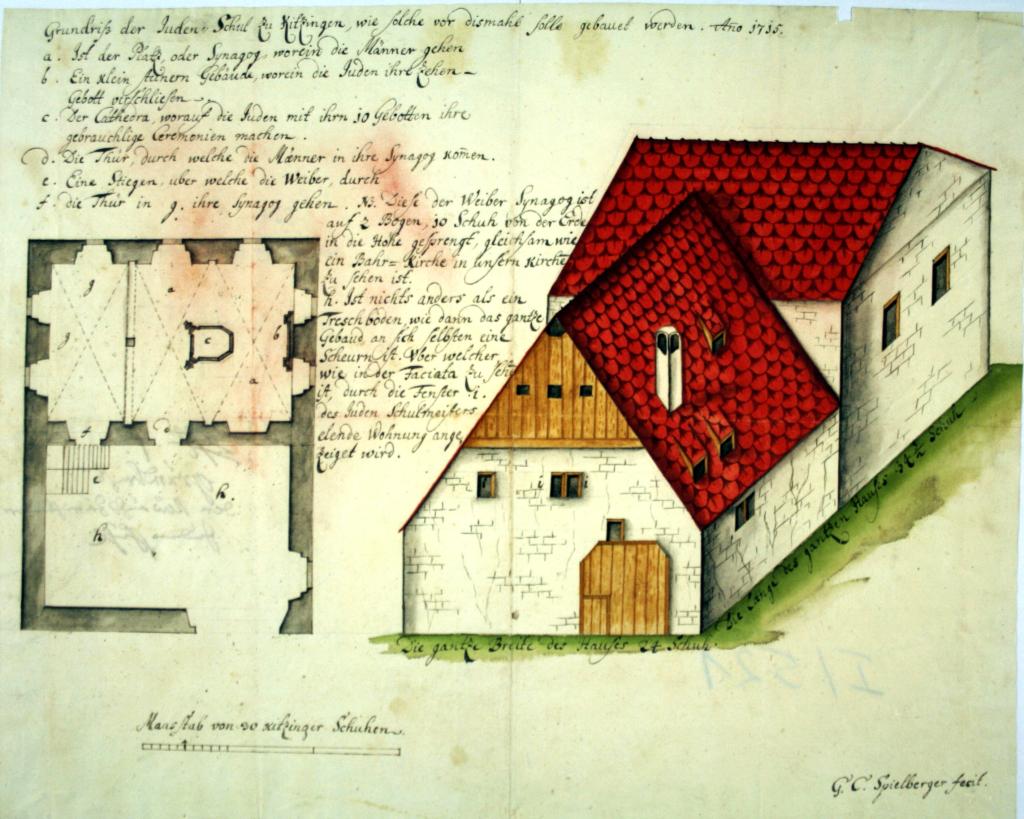 Grundriß der Juden-Schul zu Kitzingen, wie solche vor dismahl solle gebauet werden. Año 1715.
a. Ist der Platz, oder Synagog, worein die Männer gehen
b. Ein klein steinern Gebäude, worein die Juden ihre Zehen-
Gebott virschliesen.
c. Der Cathedra, worauf die Juden mit ihrn 10 Gebotten ihre
gebrauchlige Ceremonien machen.
d. Die Thür, durch welche die Männer in ihre Synagog kom̃en.
e. Eine Stiegen, uber welche die Weiber, durch
f. die Thür in g. ihre Synagog gehen. NB. Diese der Weiber Synagog ist
auf 2 Bögen, 10 Schuh von der Erde
in die Höhe gesprengt, gleichsam wie
ein Bahr=Kirche in unsern Kirche
zu sehen ist.
h. Ist nichts anders als ein
Treschböden, wie dann das gantze
Gebäud an sich selbsten eine
Scheurn ist. Uber welcher
wie in der Faciata zu seh
ist, durch die Fenster i.
des Juden Schulmeisters
elende Wohnung ange
zeiget wird.
g a
g c b
a
f d
e
h.
h
i i
Die gantze Breite des Hauses 24 Schuh.
Die Länge des gantzen Hauses 54½ Schuh
Maasstab von 30 Kitzinger Schuhen.
G. C. Spielberger fecit.